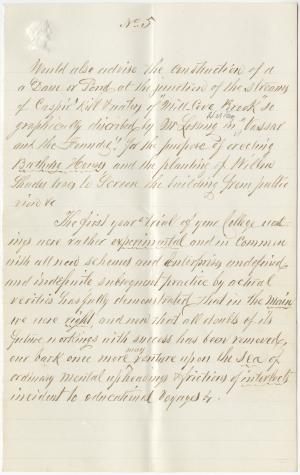 No 5
Would also advise the construction of a
a Dam or Pond at the junction of the Streams
of Casper Kill & waters of "Mill Cove Brook" so
graphically discribed by Mr Lossing in "Vassar
and the Founder" for the purpose of erecting
Bathing Houses and the planting of Willow
Shade trees to Screen the building from public
view &c
The first year's trial of your College work-
ings were rather experimental and in Common
with all new schemes and enterprises undefined
and indefinite subsequent practice by actual
verities has fully demonstrated that in the main
we were right and now that all doubts of its
future workings with success has been removed,
our bark once more may venture upon the Sea of
ordinary mental upheavings & frictions of intellects
incident to educational Voyages &.